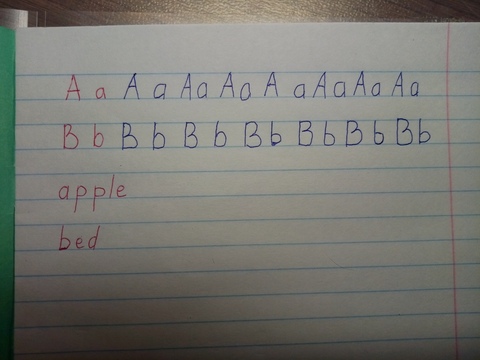 A a A a Aa Aa A a Aa Aa Aa
B b B b B b Bb Bb Bb Bb
apple
bed